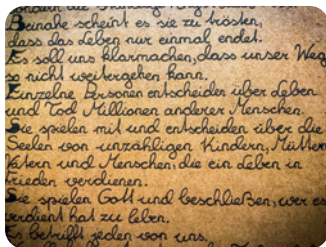 Beinahe scheint es sie zu trösten,
dass das Leben nur einmal endet.
Es soll uns klarmachen, dass unser Weg
so nicht weitergehen kann.
Einzelne Personen entscheiden über Leben
und Tod Millionen anderer Menschen.
Sie spielen mit und entscheiden über die
Seelen von unzähligen Kindern, Müttern
Vätern und Menschen, die ein Leben in
Frieden verdienen.
Sie spielen Gott und beschließen, wer es
verdient hat zu leben.
Es betrifft jeden von uns.